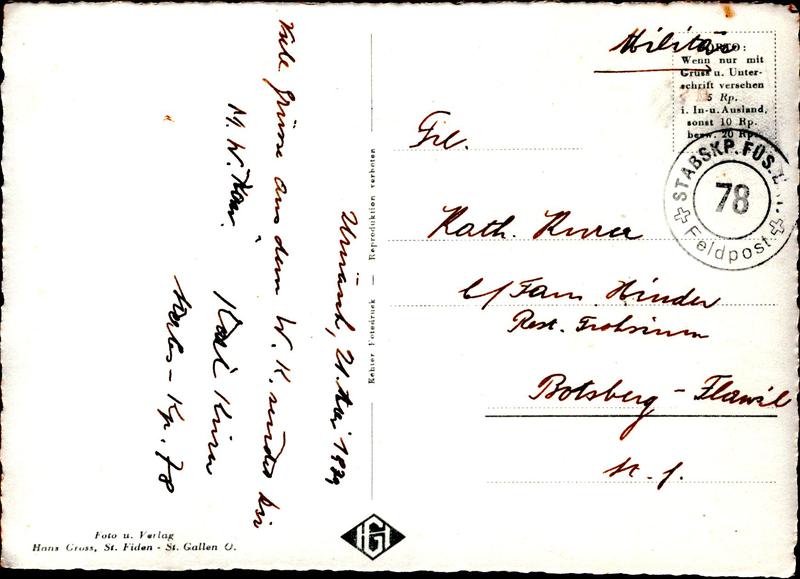 Urnäsch, 21. Mai 1939
Viele Grüsse aus dem W. K. sendet Dir
M. W. Kom.
Karl
Stabs-Kp. 78
Foto u. Verlag
Hans Gross, St. Fiden - St. Gallen O.
Echter Fotodruck — Reproduktion verboten
HG
Militär
PORTO:
Wenn nur mit
Gruss u. Unter-
schrift versehen
5 Rp.
i. In- u. Ausland,
sonst 10 Rp.
bezw. 20 Rp.
STABSKP. FÜS.
78
Feldpost
Frl.
Kath.
b/ Fam. Hinder
Rest. Frohsinn
Botsberg - Flawil
St. G.